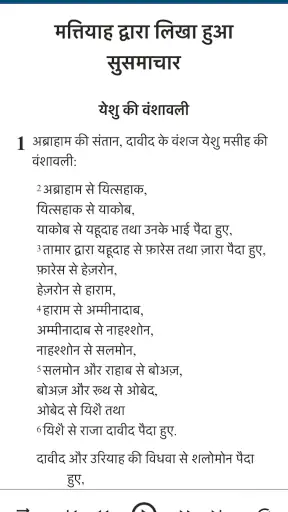 मत्तियाह द्वारा लिखा हुआ
सुसमाचार
येशु की वंशावली
1 अब्राहाम की संतान, दावीद के वंशज येशु मसीह की
वंशावली:
2 अब्राहाम से यित्सहाक,
यित्सहाक से याकोब,
याकोब से यहूदाह तथा उनके भाई पैदा हुए,
3 तामार द्वारा यहूदाह से फ़ारेस तथा ज़ारा पैदा हुए,
फ़ारेस से हेज़रोन,
हेज़रोन से हाराम,
4 हाराम से अम्मीनादाब,
अम्मीनादाब से नाहश्शोन,
नाहश्शोन से सलमोन,
5 सलमोन और राहाब से बोअज़,
बोअज़ और रूथ से ओबेद,
ओबेद से यिशै तथा
6 यिशै से राजा दावीद पैदा हुए.
दावीद और उरियाह की विधवा से शलोमोन पैदा
हुए,